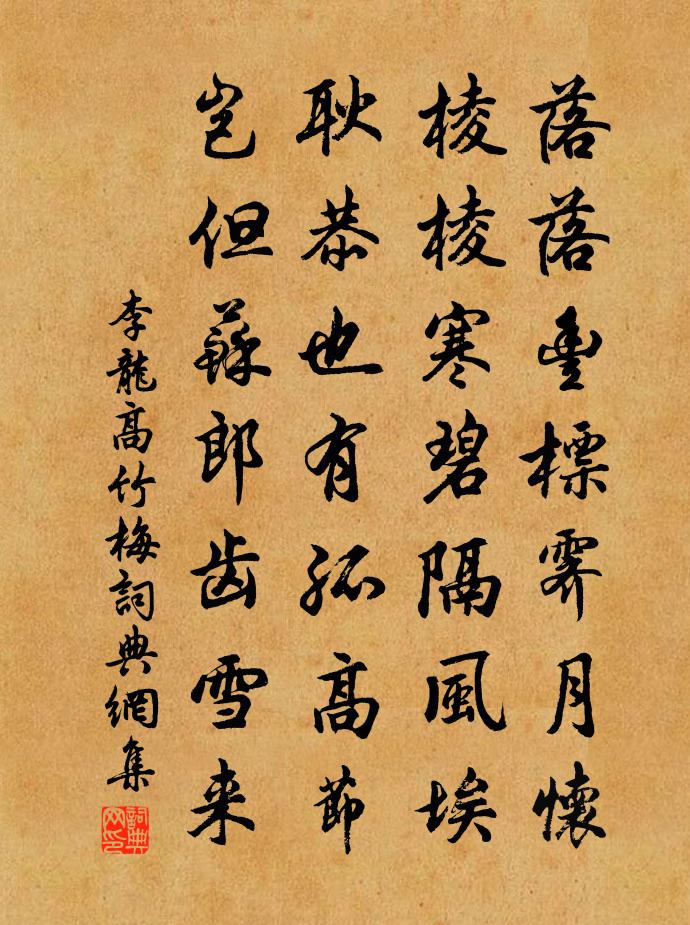 落落豐標霽月懷
棱棱寒碧隔風埃
耿恭也有孤高節
豈但蘇郎齿雪来
李龍高竹梅詞典網集
詞典网印